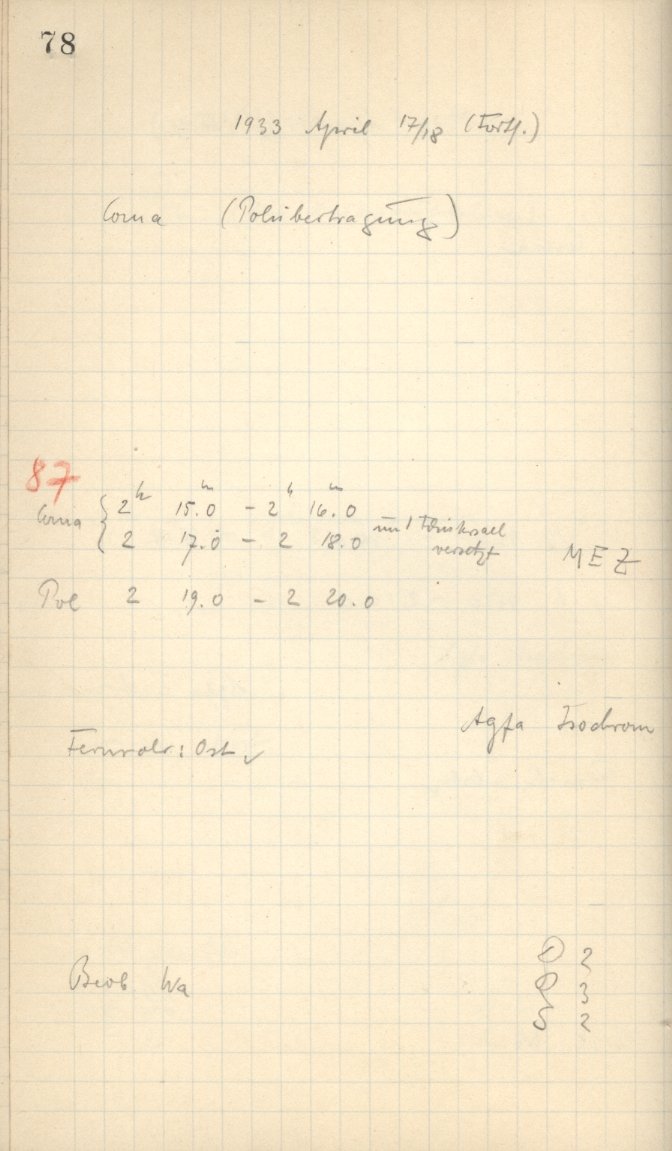 78
1933 April 17/18 (Forts.)
Coma (Polübertragung)
87
Coma { 2h 15.0m - 2h 16.0m
2 17.0 - 2 18.0 um 1 versetzt
MEZ
Pol 2 19.0 - 2 20.0
Agfa Isochrom
Fernrohr: Ost ✓
Beob Wa
D 2
R 3
S 2